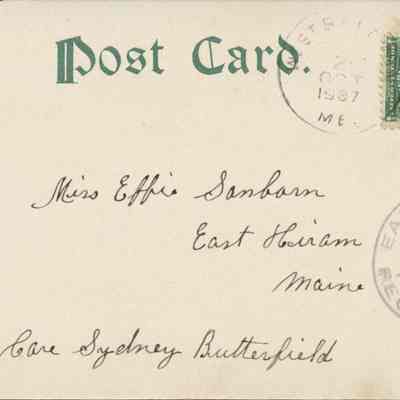 Post Card.
1907
ME.
Miss Effie Sanborn
East Hiram
Maine
Care Sydney Butterfield
EA
REC